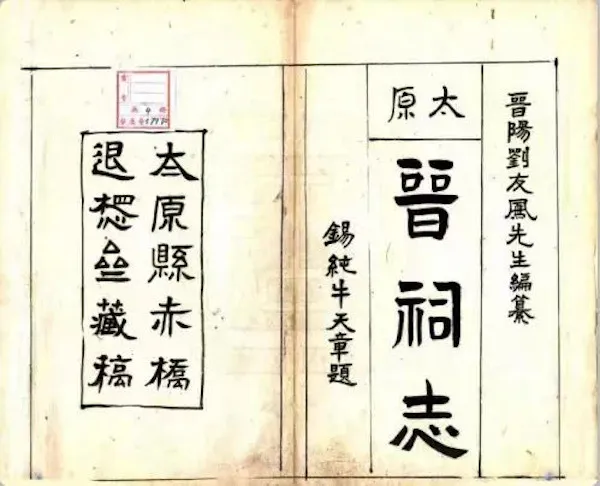 晉陽劉友鳳先生編纂
太原
晉祠志
錫純牛天章題
太原縣赤橋
退想亝藏稿